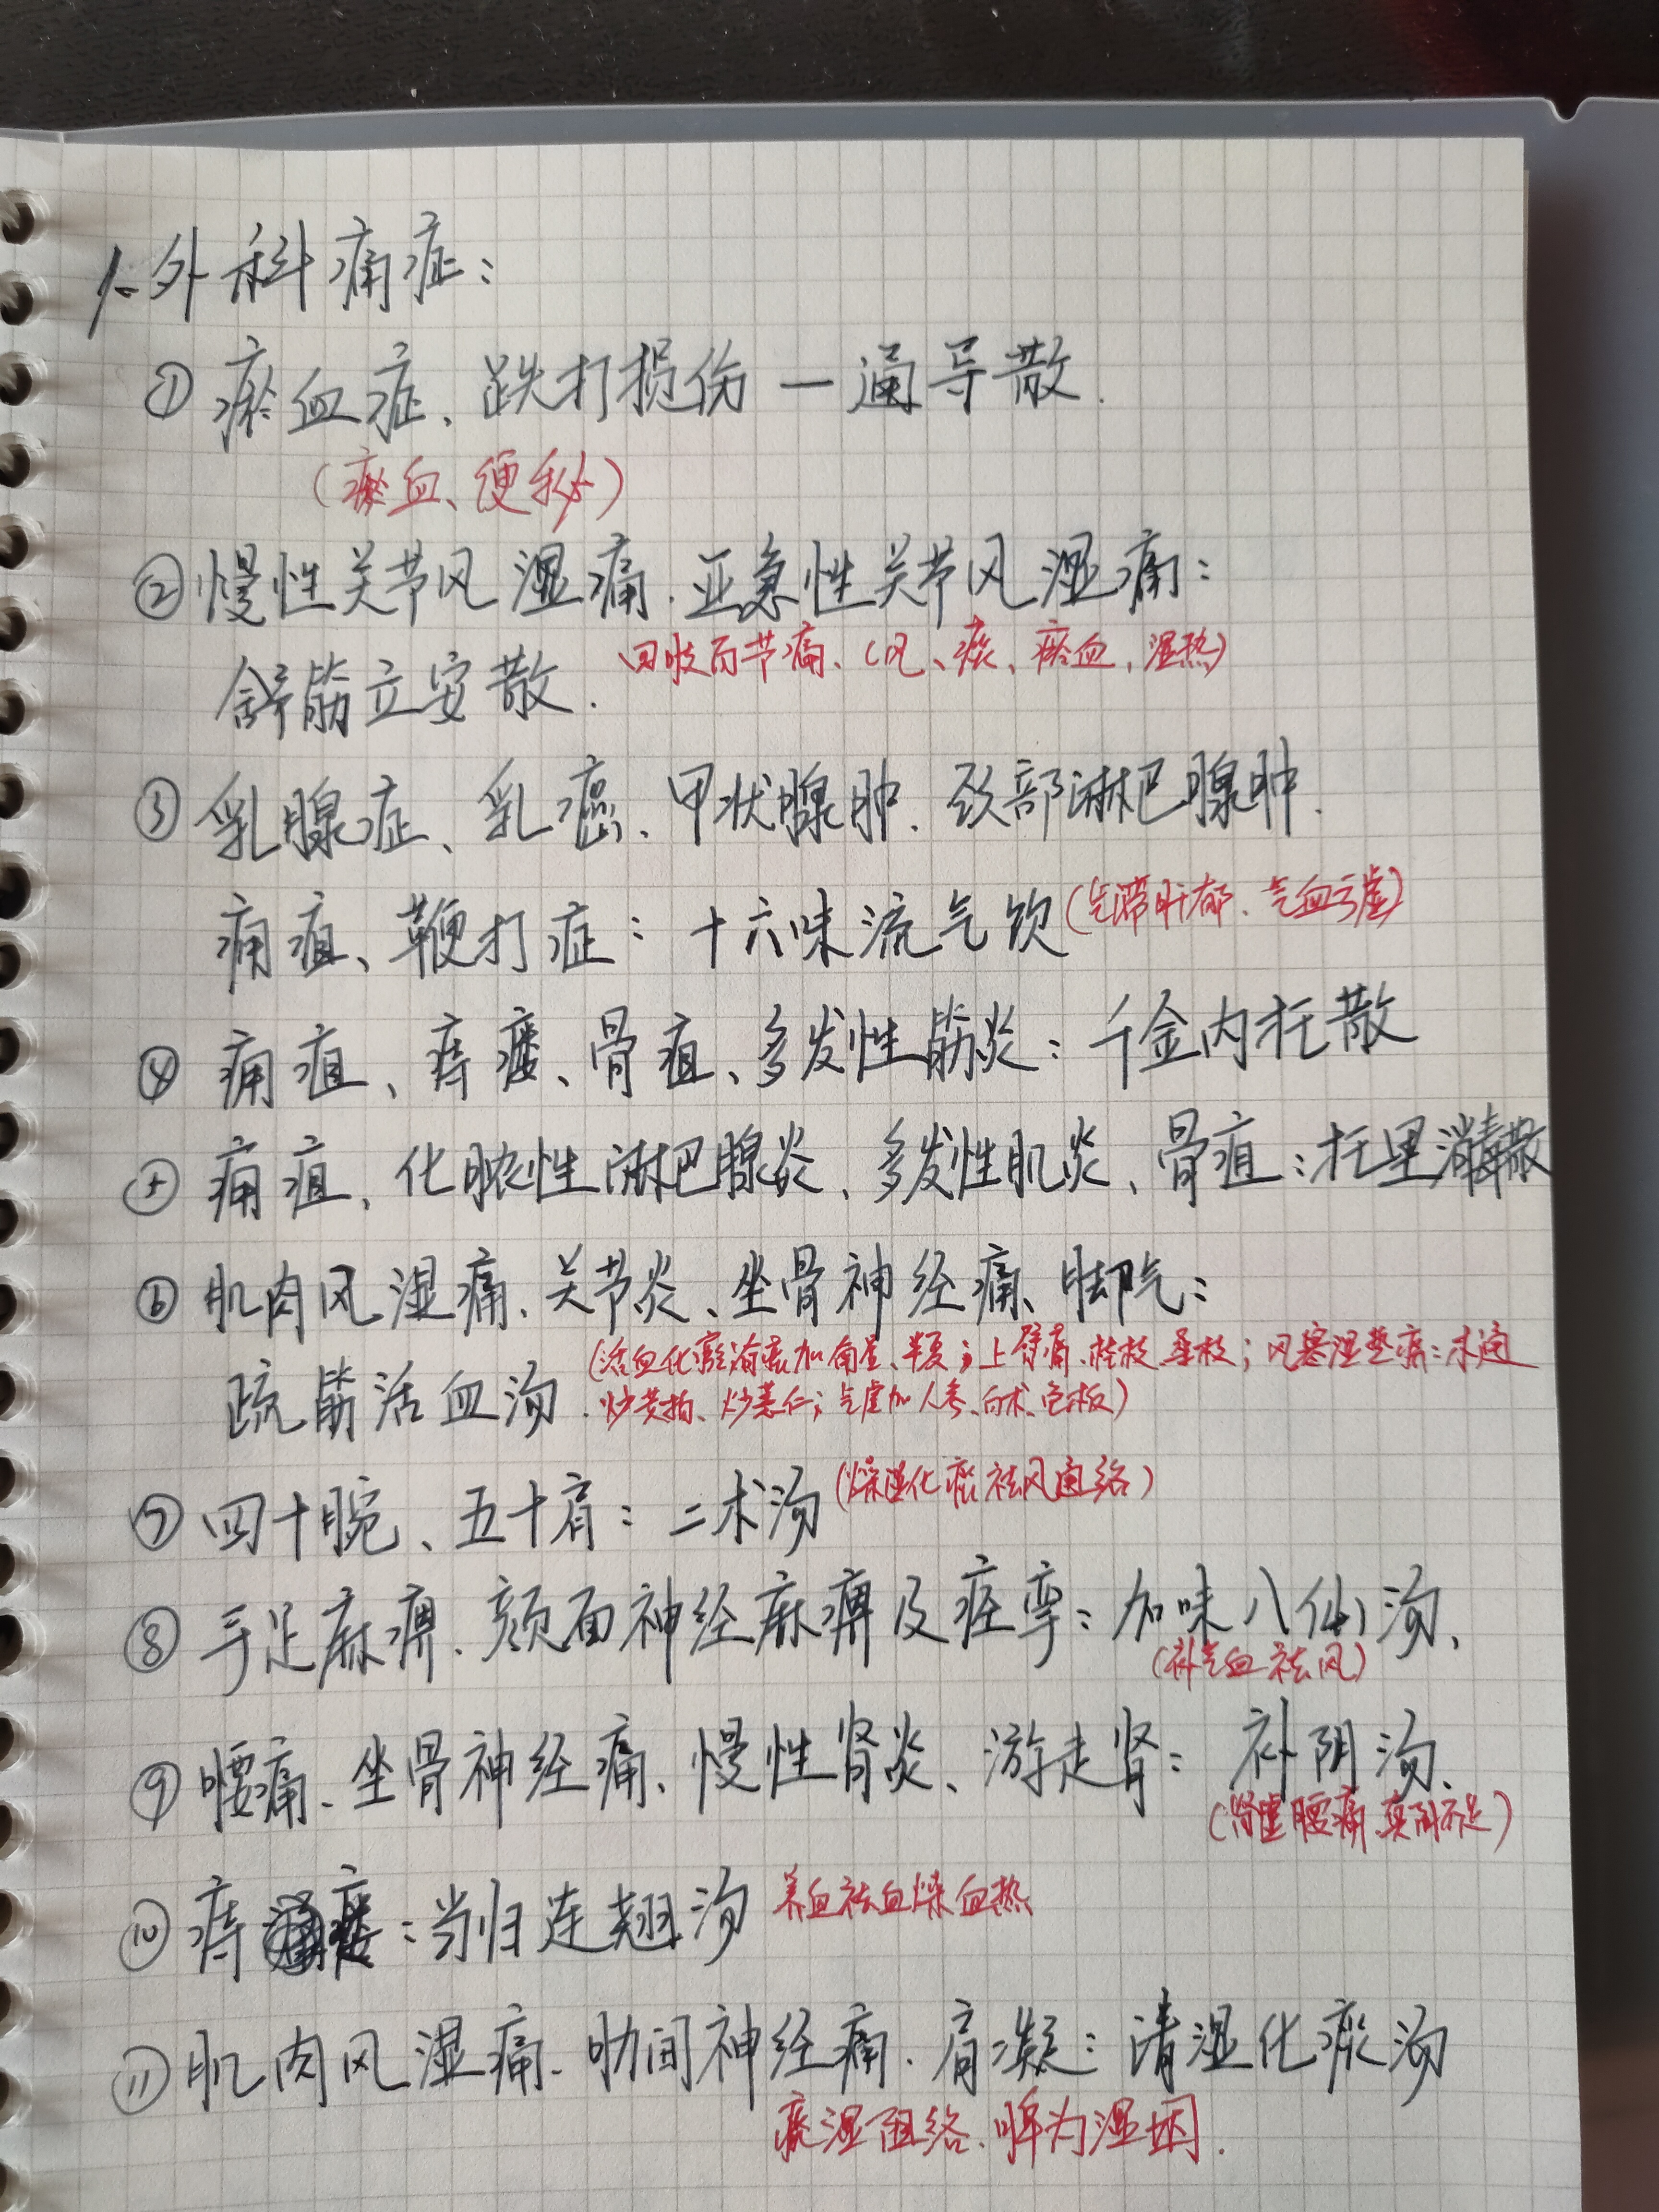 1、外科痛症：
① 瘀血症、跌打损伤 — 通导散.
（瘀血、便秘）
② 慢性关节风湿痛、亚急性关节风湿痛：
舒筋立安散. 四肢百节痛、（风、痰、瘀血、湿热）
③ 乳腺症、乳癌、甲状腺肿、颈部淋巴腺肿.
痈疽、鞭打症：十六味流气饮（气滞肝郁、气血亏虚）
④ 痈疽、痔瘘、骨疽、多发性筋炎：千金内托散
⑤ 痈疽、化脓性淋巴腺炎、多发性肌炎、骨疽：托里消毒散
⑥ 肌肉风湿痛、关节炎、坐骨神经痛、脚气：
（活血化瘀治痰加南星、半夏；上臂痛、桂枝、桑枝；风寒湿垫痛：木通
疏筋活血汤. 炒黄柏、炒薏仁；气虚加人参、白术、龟板）
⑦ 四十腕、五十肩：二术汤（燥湿化痰祛风通络）
⑧ 手足麻痹、颜面神经麻痹及痉挛：加味八仙汤、
（补气血祛风）
⑨ 腰痛、坐骨神经痛、慢性肾炎、游走肾：补阴汤、
（肾虚腰痛、真阴不足）
⑩ 痔瘘：当归连翘汤 养血祛血燥血热
⑪ 肌肉风湿痛、肋间神经痛、肩凝：清湿化痰汤
痰湿阻络、脾为湿困.